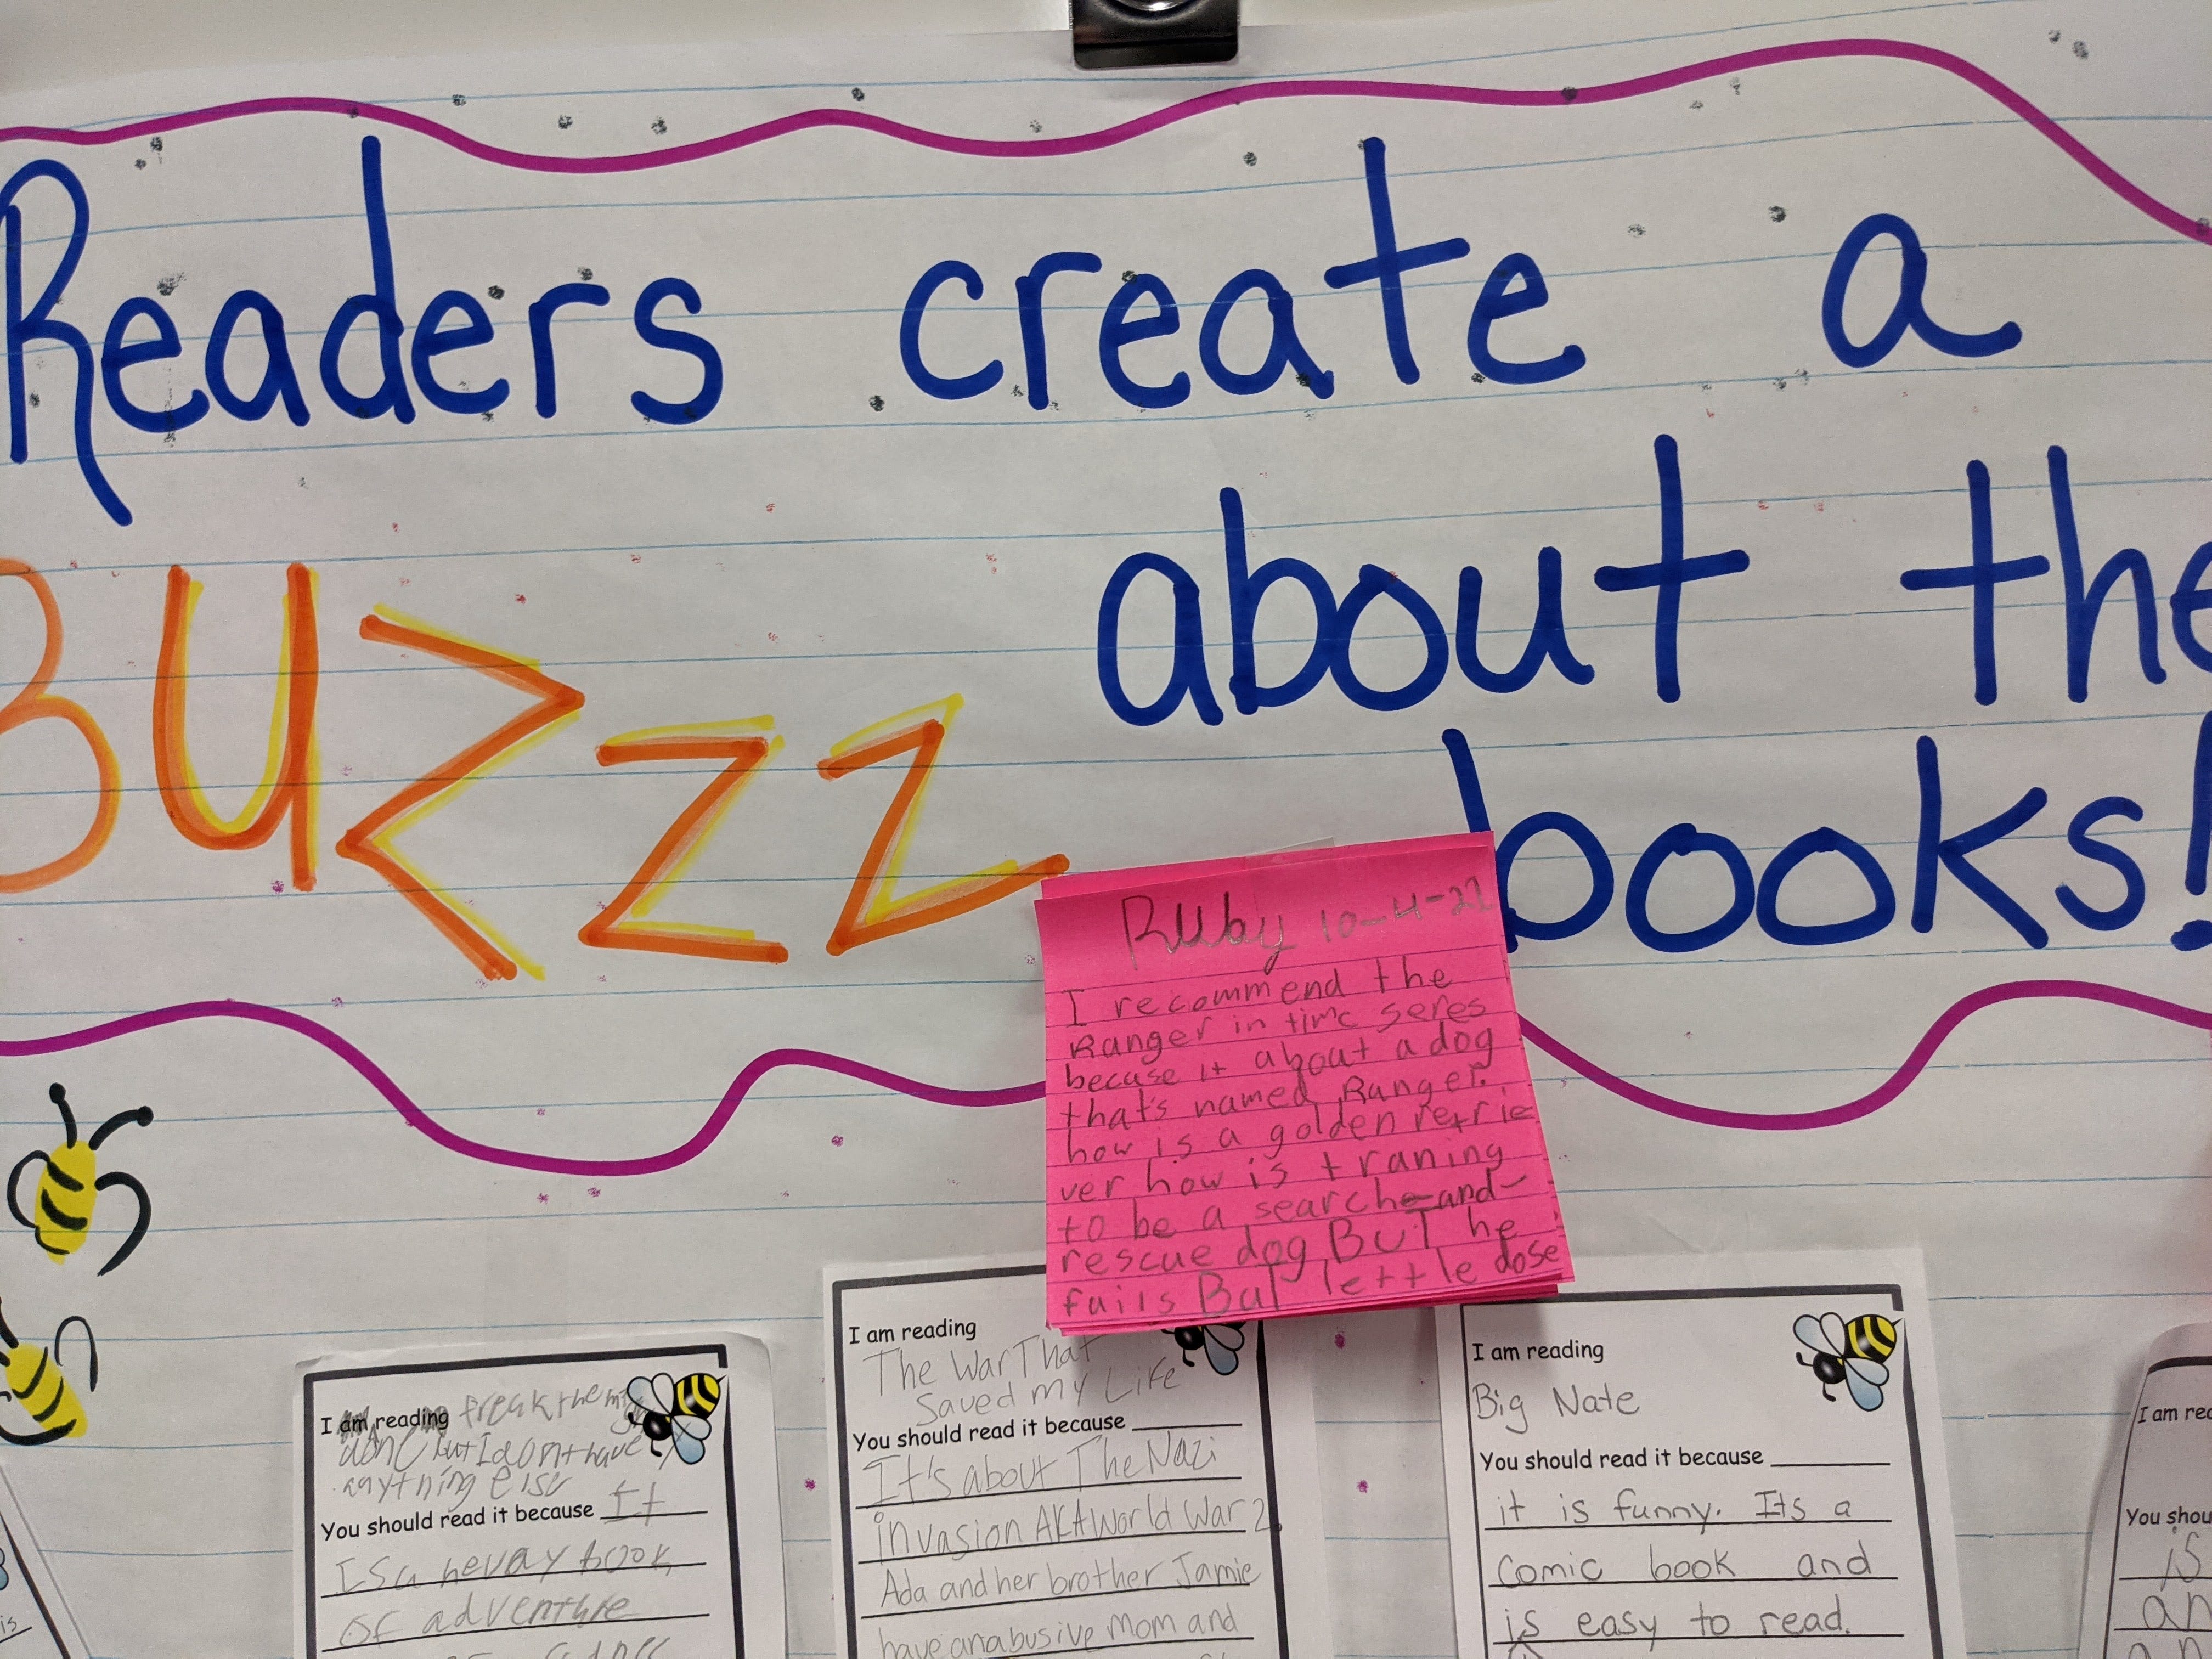 Readers create a
BUZZZ about the
books!
Ruby 10-4-21
I recommend the
Ranger in time seres
becuse it about a dog
that's named Ranger.
how is a golden retrie
ver how is traning
to be a search and
rescue dog BUT he
fails But lettle dose
I am reading freak the
but I don't have
anything else
You should read it because It
Is a hevay book
of adventure
I am reading
The War That
Saved my Life
You should read it because
It's about The Nazi
invasion AKA World War 2.
Ada and her brother Jamie
have an abusive Mom and
I am reading
Big Nate
You should read it because
it is funny. Its a
comic book and
is easy to read.
I am rea
You shou
is
an
is